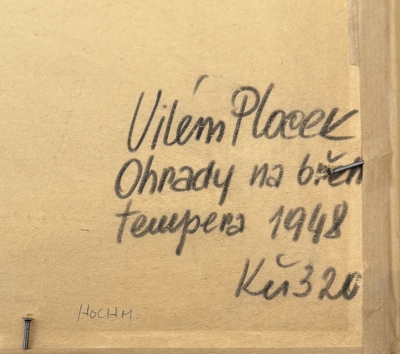 Vilém Plocek
Ohrady na břeh
tempera 1948
Kčs 320
HOCHM.